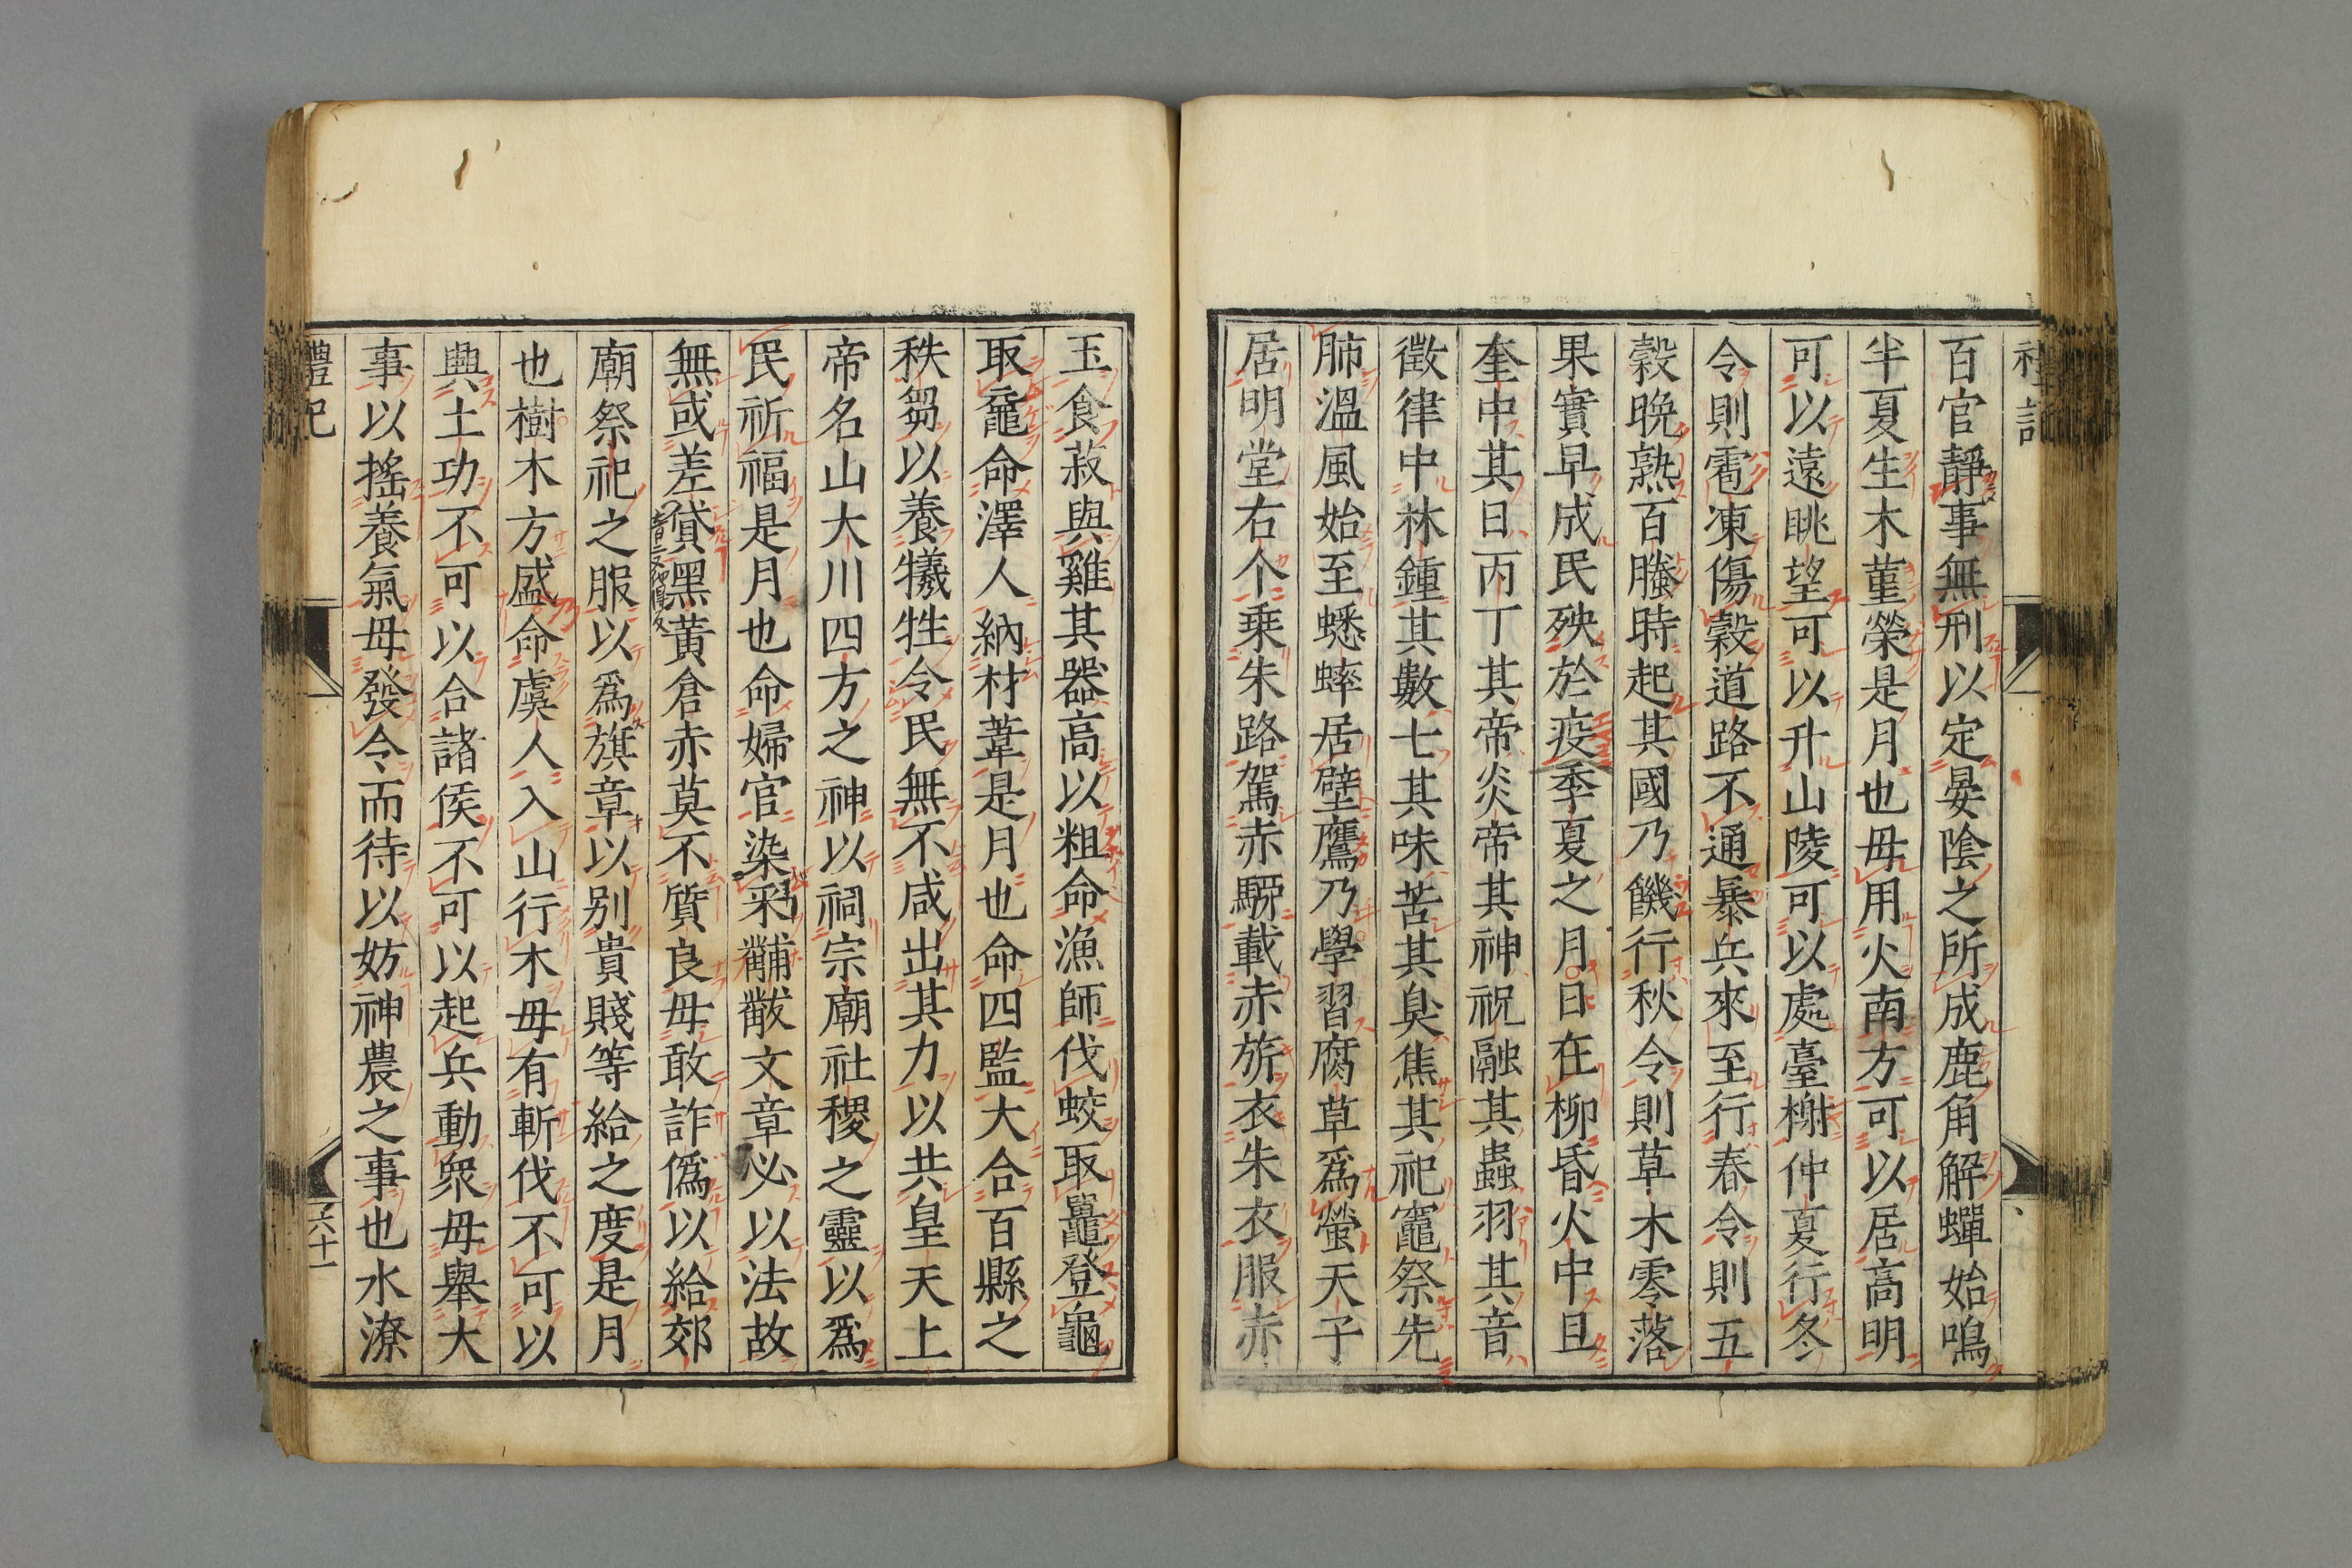 禮記
百官靜事無刑以定晏陰之所成鹿角解蟬始鳴
半夏生木菫榮是月也毋用火南方可以居高明
可以遠眺望可以升山陵可以處臺榭仲夏行冬
令則雹凍傷穀道路不通暴兵來至行春令則五
穀晚熟百螣時起其國乃饑行秋令則草木零落
果實早成民殃於疫季夏之月日在柳昏火中旦
奎中其日丙丁其帝炎帝其神祝融其蟲羽其音
徵律中林鍾其數七其味苦其臭焦其祀竈祭先
肺溫風始至蟋蟀居壁鷹乃學習腐草爲螢天子
居明堂右个乗朱路駕赤駵載赤旂衣朱衣服赤
玉食菽與雞其器高以粗命漁師伐蛟取鼉登龜
取黿命澤人納材葦是月也命四監大合百縣之
秩芻以養犧牲令民無不咸出其力以共皇天上
帝名山大川四方之神以祠宗廟社稷之靈以爲
民祈福是月也命婦官染采黼黻文章必以法故
無或差貸黑黃倉赤莫不質良毋敢詐僞以給郊
廟祭祀之服以爲旗章以别貴賤等給之度是月
也樹木方盛命虞人入山行木毋有斬伐不可以
興土功不可以合諸侯不可以起兵動衆毋舉大
事以搖養氣毋發令而待以妨神農之事也水潦
禮記
六十一